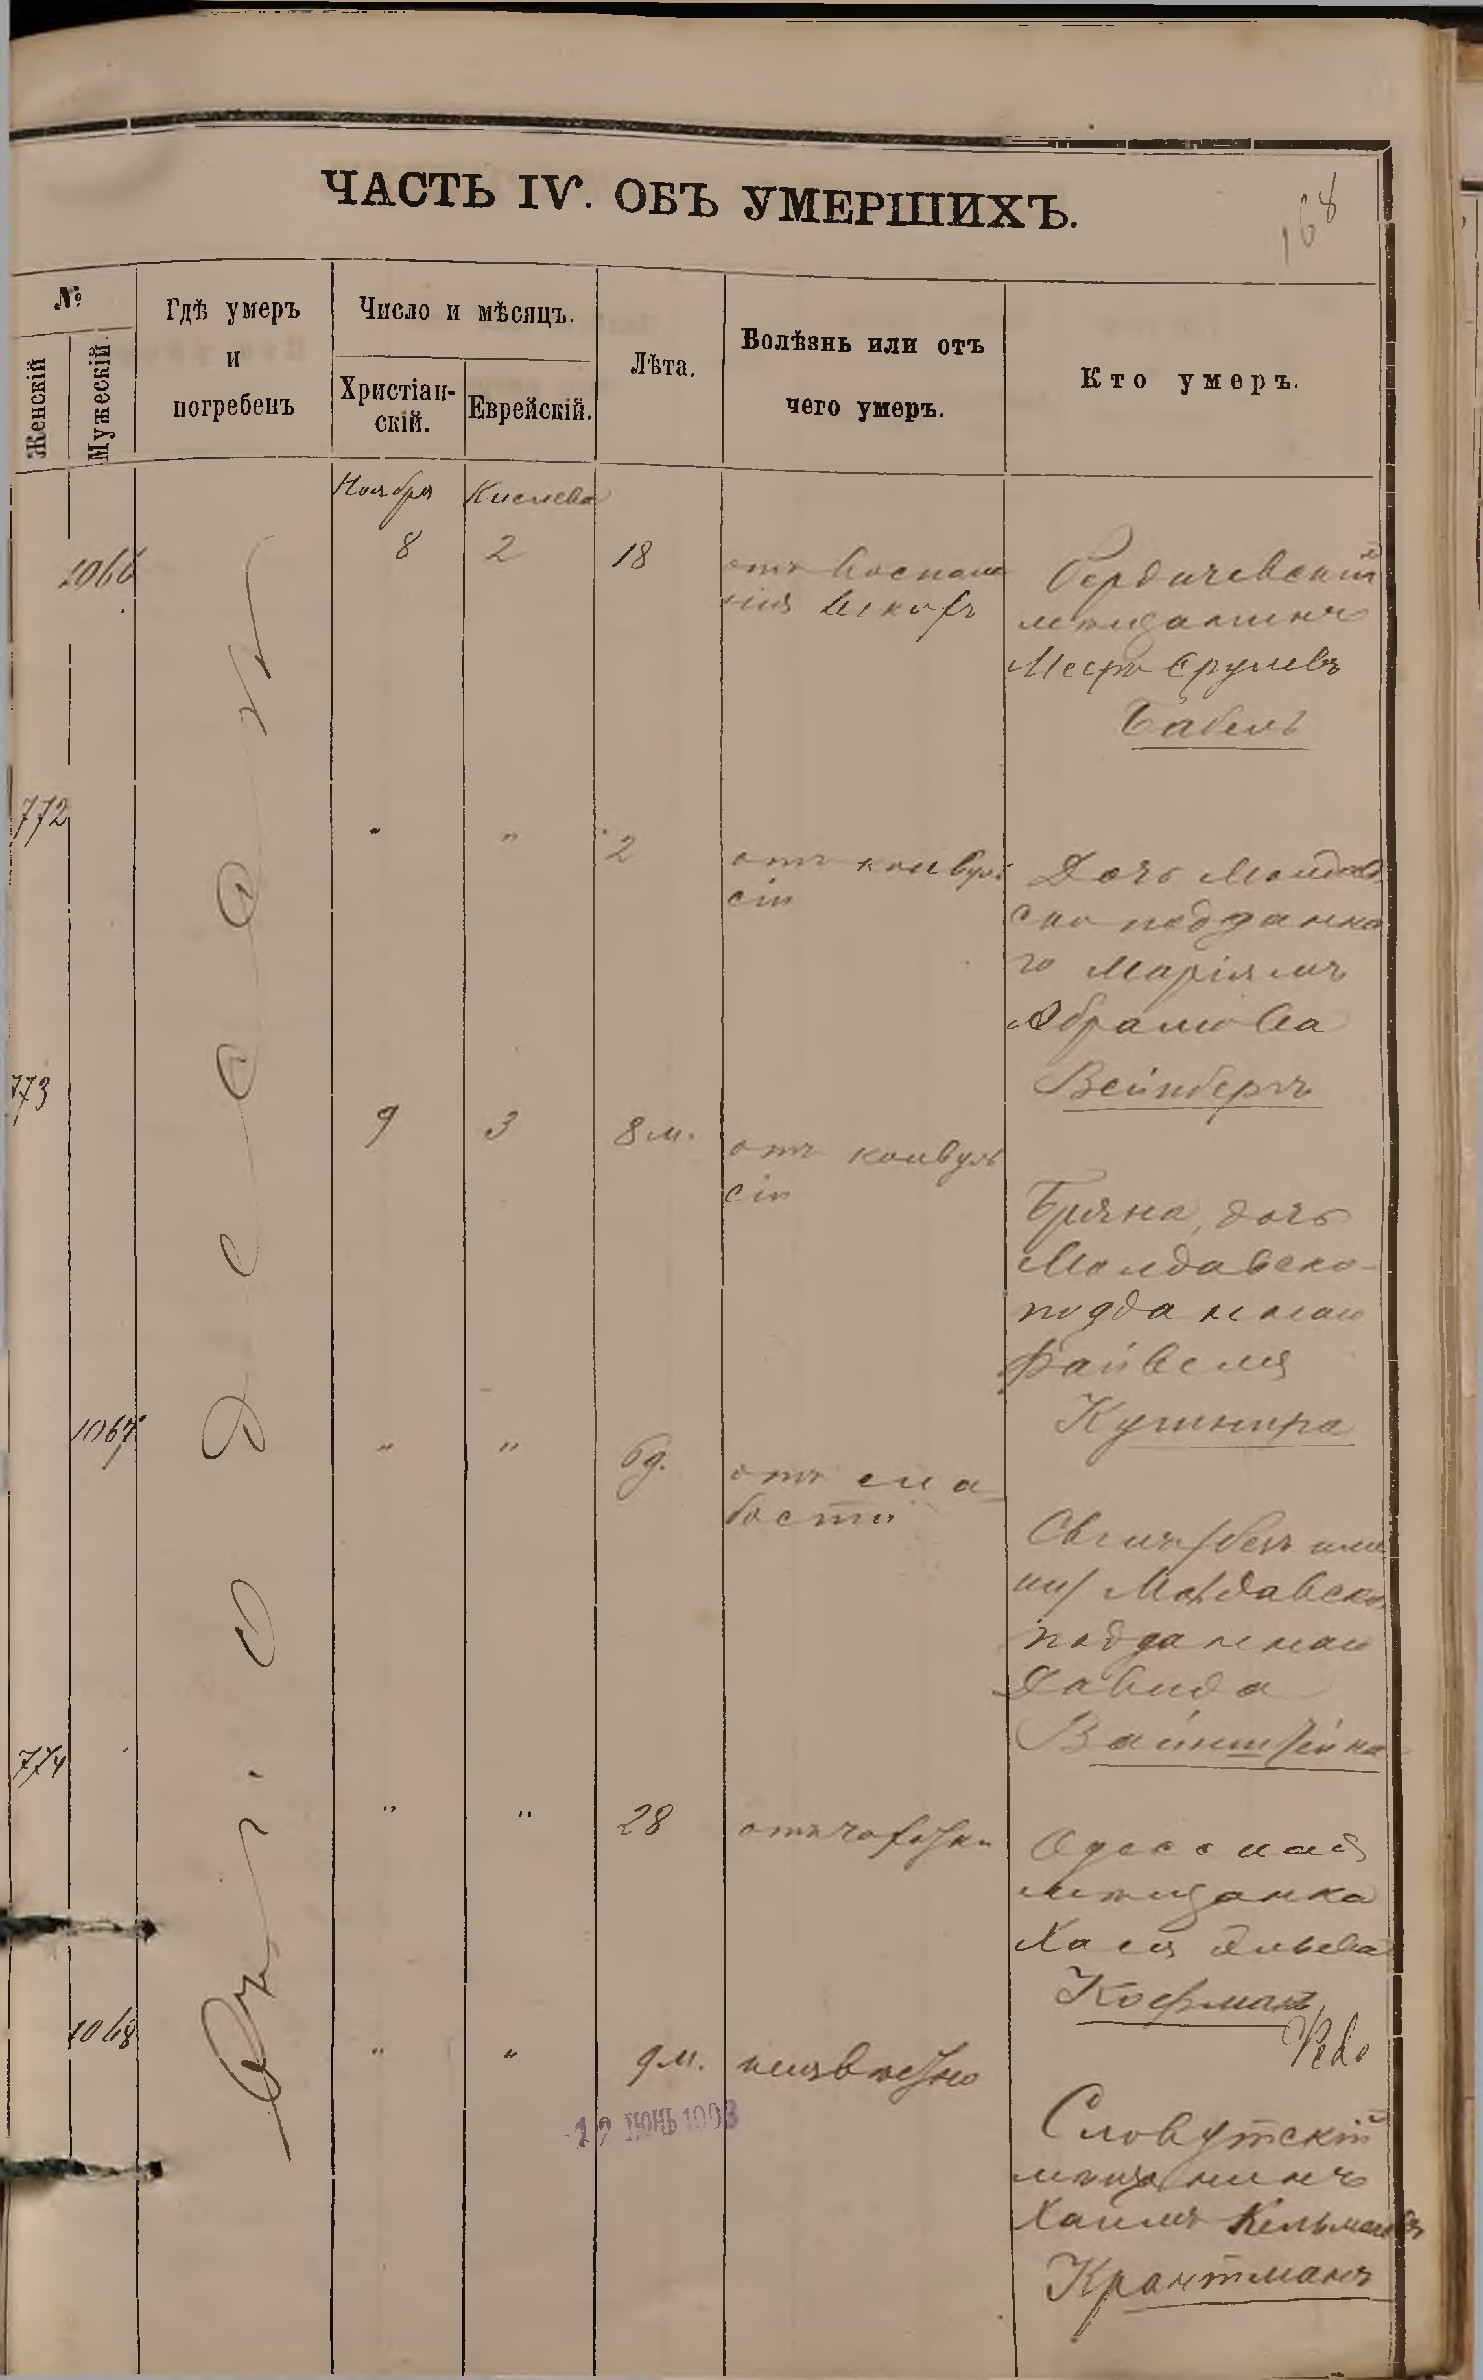 168
ЧАСТЬ IV. ОБЪ УМЕРШИХЪ.
№
Женскій
Мужескій.
Гдѣ умеръ
и
погребенъ
Число и мѣсяцъ.
Христіан-
скій.
Еврейскій.
Лѣта.
Болѣзнь или отъ
чего умеръ.
Кто умеръ.
Ноября
Кислева
1066
8
2
18
отъ воспале
нія
Бердичевскій
мѣщанинъ
Мееръ Срулевъ
Бабель
772
"
"
2
отъ конвуль
сіи
Дочь Молдав
ско подданна
го Маріямъ
Абрамова
Вейнбергъ
773
9
3
8 м.
отъ конвуль
сіи
Бряна, дочь
Молдавско-
подданнаго
Файвеля
Кушнира
1067
"
"
6 д.
отъ сла-
бости
Сынъ /безъ име
ни/ Молдавско
подданнаго
Давида
Вайнштейна
774
"
"
28
отъ чахотки
Одесская
мѣщанка
Хая
Кофманъ
1068
"
"
9 м.
неизвѣстно
12 ИЮНЬ 1908
Славутскій
мѣщанинъ
Хаимъ Кельмановъ
Крантманъ
въ г. Одессѣ